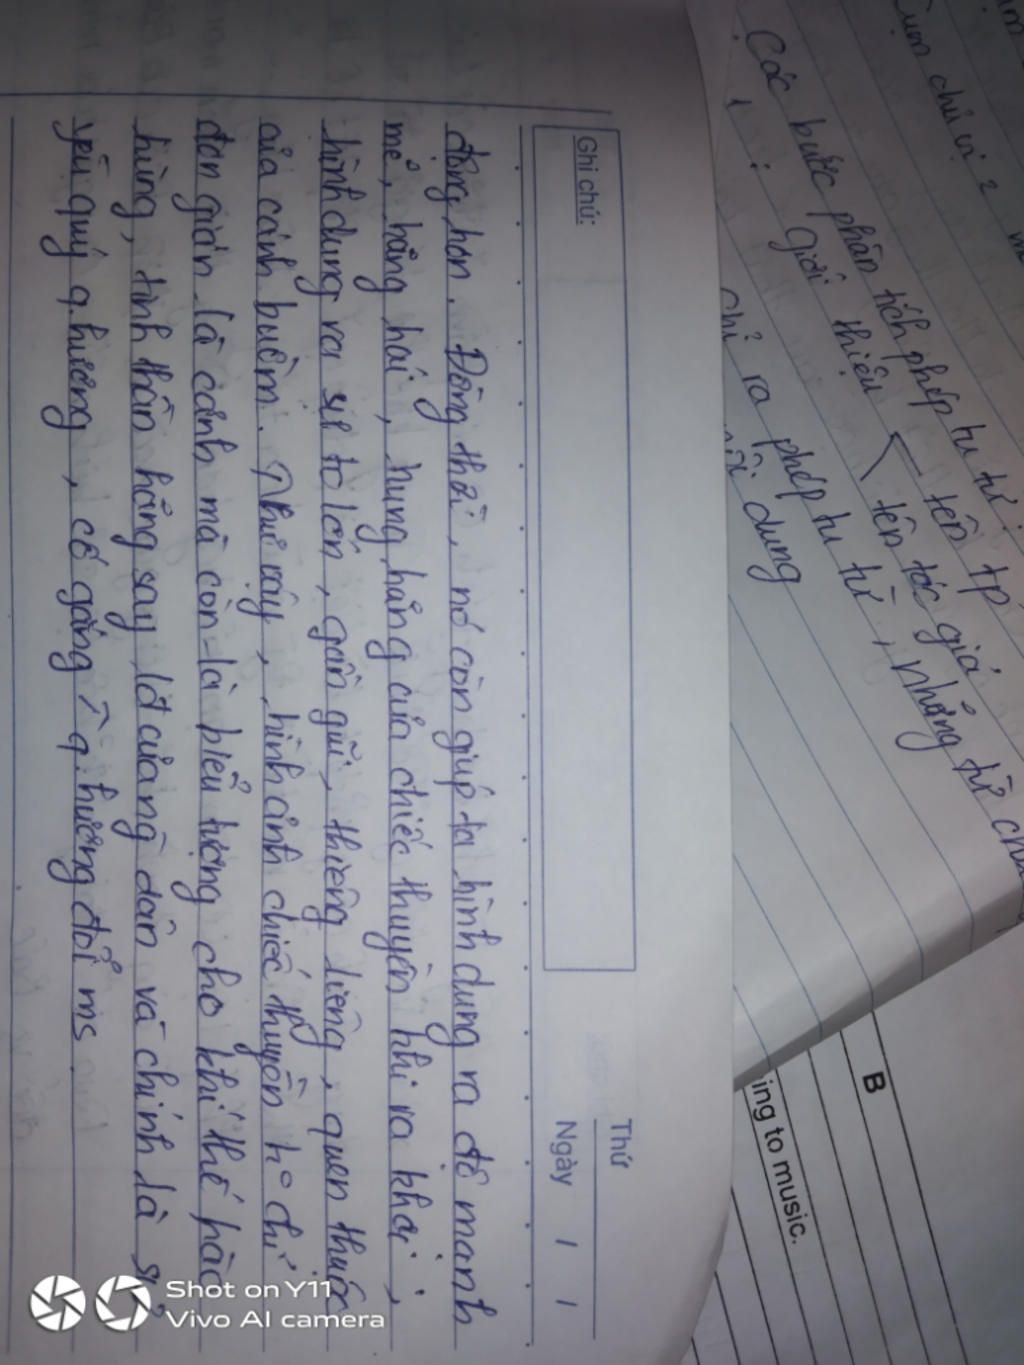 Ghi chú:
Thứ
Ngày / /
động hơn. Đồng thời, nó còn giúp ta hình dung ra độ mạnh
mẻ, hăng hái, hưng hăng của chiếc thuyền khi ra khơi,
hình dung ra sự to lớn, gần gũi, thiêng liêng, quen thuộc
của cánh buồm. Như vậy, hình ảnh chiếc thuyền ko chỉ
đơn giản là cảnh mà còn là biểu tượng cho khí thế hào
hùng, tinh thần hăng say lđ của ng dân và chính là sự
yêu quý q.hương, cố gắng q.hương đổi ms.
Cụm chủ vị 2
Các bước phân tích phép tu từ:
1. giới thiệu tên tp
tên tác giả
chỉ ra phép tu từ, những từ
nội dung
B
ing to music.
Shot on Y11
Vivo AI camera